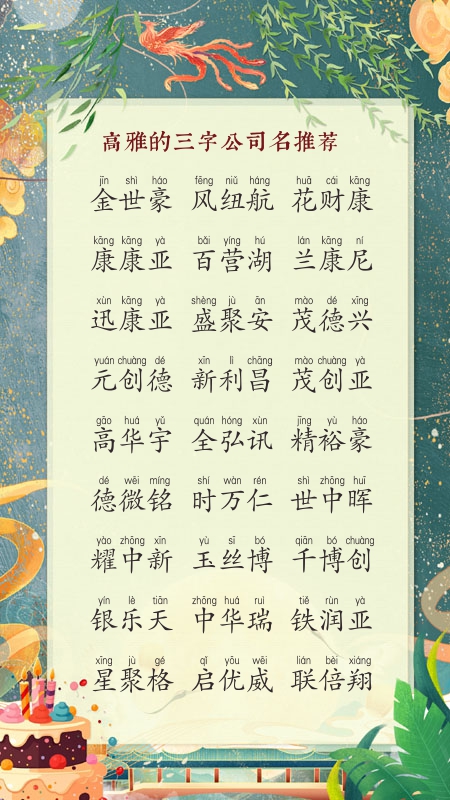 高雅的三字公司名推荐
jīn shì háo fēng niǔ háng huā cái kāng
金世豪 风纽航 花财康
kāng kāng yà bǎi yíng hú lán kāng ní
康康亚 百营湖 兰康尼
xùn kāng yà shèng jù ān mào dé xīng
迅康亚 盛聚安 茂德兴
yuán chuàng dé xīn lì chāng mào chuàng yà
元创德 新利昌 茂创亚
gāo huá yǔ quán hóng xùn jīng yù háo
高华宇 全弘讯 精裕豪
dé wēi míng shí wàn rén shì zhōng huī
德微铭 时万仁 世中晖
yào zhōng xīn yù sī bó qiān bó chuàng
耀中新 玉丝博 千博创
yín lè tiān zhōng huá ruì tiě rùn yà
银乐天 中华瑞 铁润亚
xīng jù gé qǐ yōu wēi lián bèi xiáng
星聚格 启优威 联倍翔